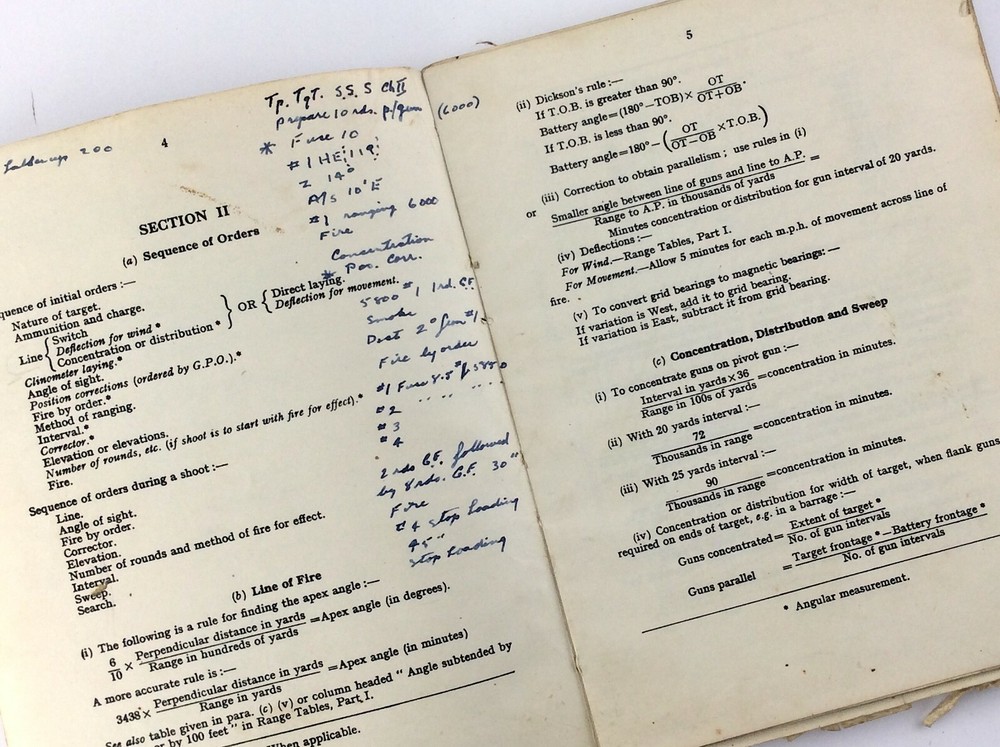 Ladder up 200
4
Tp. Tgt. S.S. S Ch II
prepare 10 rds. p/gun (6000)
* Fuse 10
#1 HE 119
Z 14°
A/S 10' E
#1 ranging 6000
Fire
Concentration
* Pos. Corr.
5800 #1 1 rd. G.F.
Smoke
Dist 2° gun #1
Fire by order
#1 Fuse 8.5
#2 " " "
#3
#4
2 rds G.F. followed
by 8 rds. G.F. 30"
Fire
#4 stop loading
45"
stop loading
SECTION II
(a) Sequence of Orders
quence of initial orders :—
Nature of target.
Ammunition and charge.
Line { Switch
Deflection for wind *
Concentration or distribution * } OR { Direct laying.
Deflection for movement.
Clinometer laying.*
Angle of sight.
Position corrections (ordered by G.P.O.).*
Fire by order.*
Method of ranging.
Interval.*
Corrector.*
Elevation or elevations.
Number of rounds, etc. (if shoot is to start with fire for effect).*
Fire.
Sequence of orders during a shoot :—
Line.
Angle of sight.
Fire by order.
Corrector.
Elevation.
Number of rounds and method of fire for effect.
Interval.
Sweep.
Search.
(b) Line of Fire
(i) The following is a rule for finding the apex angle :—
6/10 × Perpendicular distance in yards / Range in hundreds of yards = Apex angle (in degrees).
A more accurate rule is :—
3438 × Perpendicular distance in yards / Range in yards = Apex angle (in minutes)
See also table given in para. (c) (v) or column headed " Angle subtended by
or by 100 feet " in Range Tables, Part I.
When applicable.
5
(ii) Dickson's rule :—
If T.O.B. is greater than 90°.
Battery angle=(180°−TOB)× OT / OT+OB.
If T.O.B. is less than 90°.
Battery angle=180°−( OT / OT−OB ×T.O.B.)
(iii) Correction to obtain parallelism ; use rules in (i)
or Smaller angle between line of guns and line to A.P. / Range to A.P. in thousands of yards =
Minutes concentration or distribution for gun interval of 20 yards.
(iv) Deflections :—
For Wind.—Range Tables, Part I.
For Movement.—Allow 5 minutes for each m.p.h. of movement across line of
fire.
(v) To convert grid bearings to magnetic bearings: —
If variation is West, add it to grid bearing.
If variation is East, subtract it from grid bearing.
(c) Concentration, Distribution and Sweep
(i) To concentrate guns on pivot gun :—
Interval in yards × 36 / Range in 100s of yards =concentration in minutes.
(ii) With 20 yards interval :—
72 / Thousands in range =concentration in minutes.
(iii) With 25 yards interval :—
90 / Thousands in range =concentration in minutes.
(iv) Concentration or distribution for width of target, when flank guns
required on ends of target, e.g. in a barrage :—
Guns concentrated= Extent of target * / No. of gun intervals
Guns parallel = Target frontage *—Battery frontage * / No. of gun intervals
* Angular measurement.